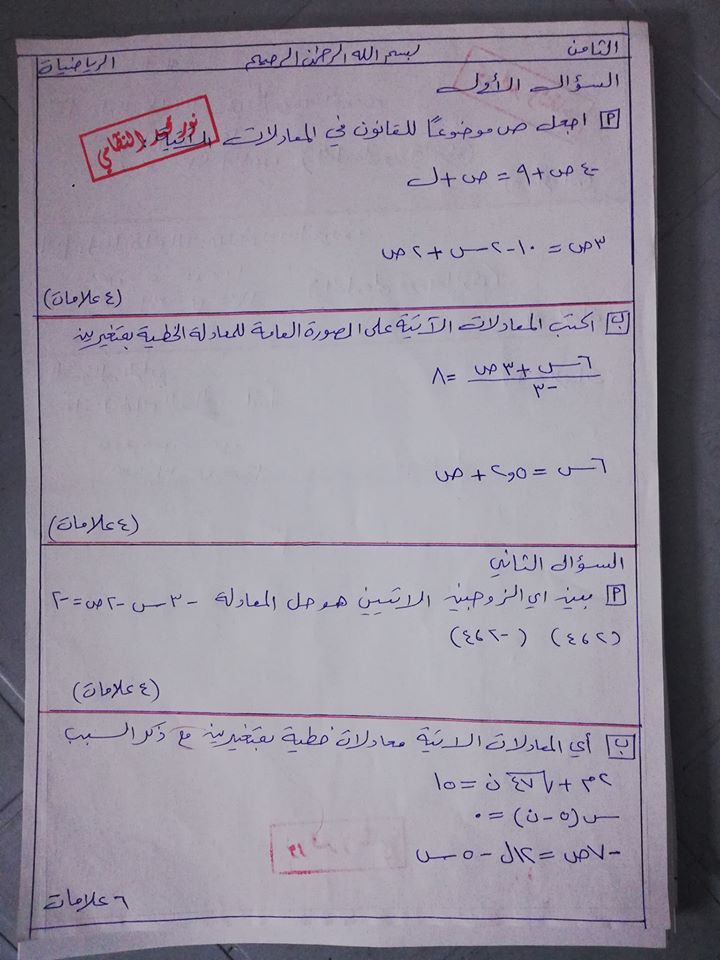 الثامن بسم الله الرحمن الرحيم الرياضيات
السؤال الأول
أ اجعل ص موضوعاً للقانون في المعادلات الآتية :
-٤ص + ٩ = ص + ل
٣ص = ١٠ - ٢س + ٢ص
(٤ علامات)
ب اكتب المعادلات الآتية على الصورة العامة للمعادلة الخطية بمتغيرين
٦س + ٣ص = ٨
-٣
٦س = ٢,٥ + ص
(٤ علامات)
السؤال الثاني
أ بين اي الزوجين الاتيين هو حل المعادلة -٣س - ٢ص = -٢
(٤،٢) (-٤،٢)
(٤ علامات)
ب أي المعادلات الاتية معادلات خطية بمتغيرين مع ذكر السبب
٢م + √٤٧ ن = ١٥
س(٥ - ن) = ٠
-٧ص = ١٢ل - ٥س
٦ علامات